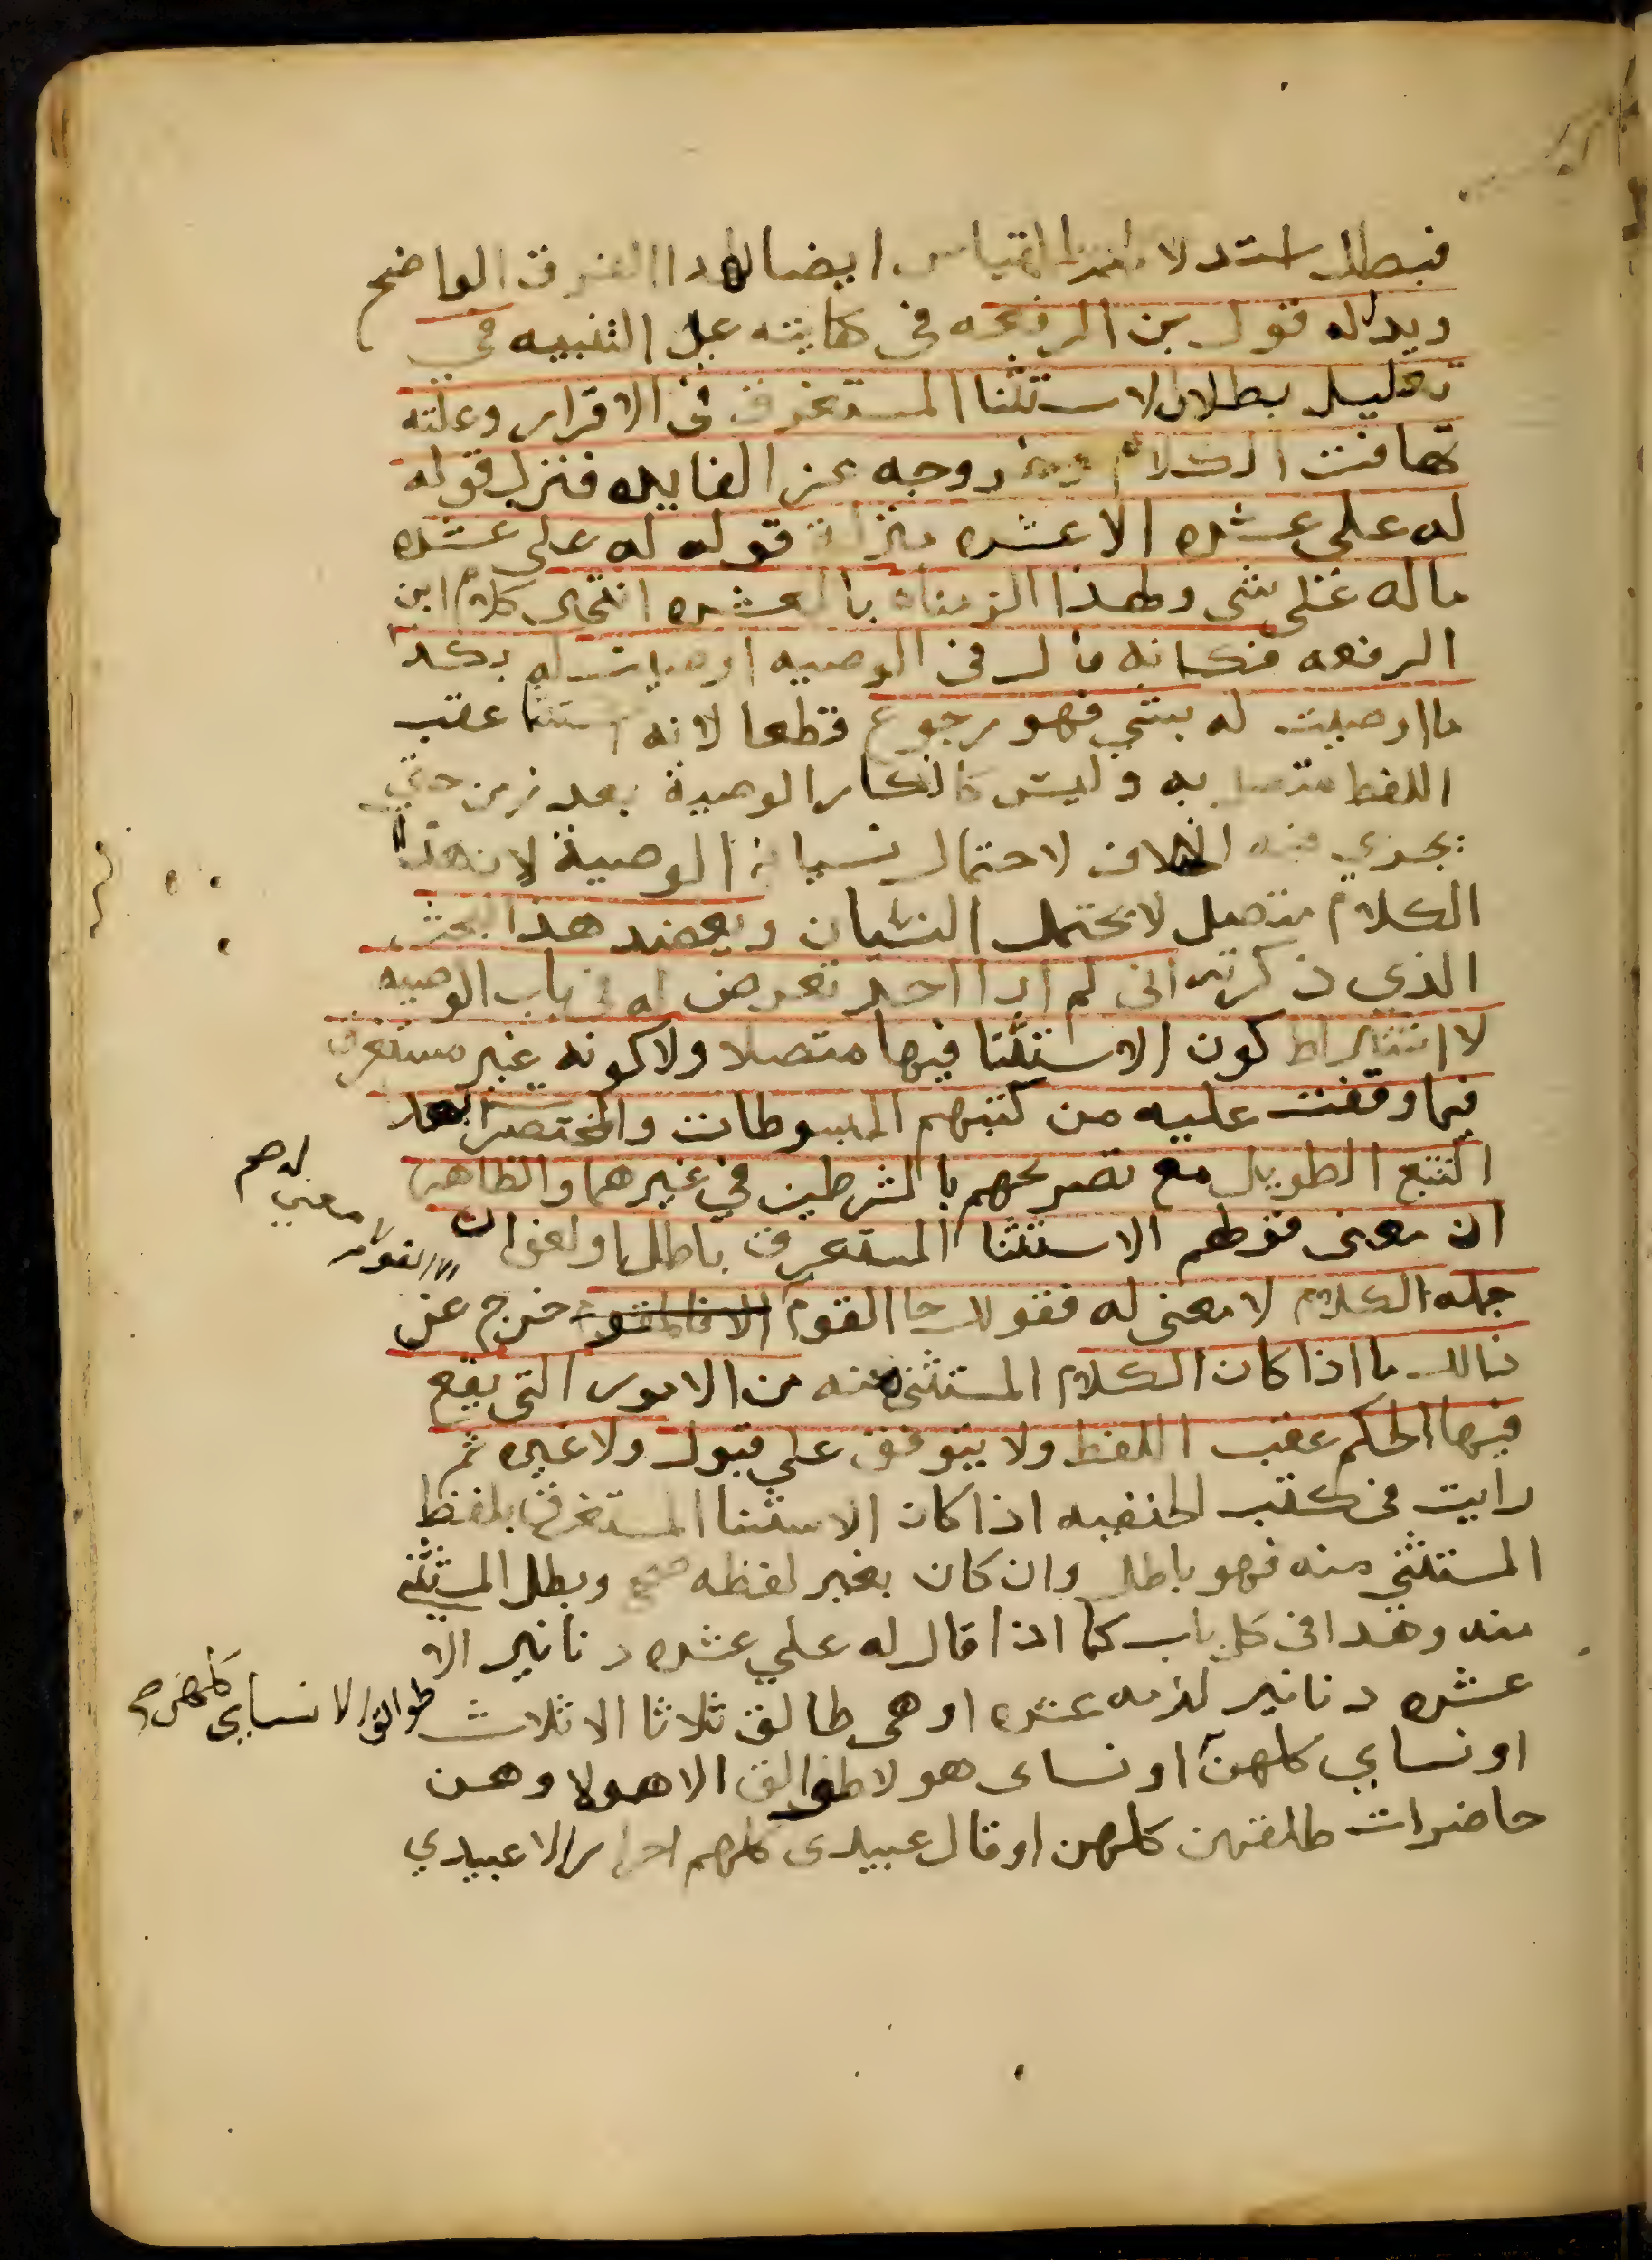 فبطل استدلا القياس ايضا لهذا الفرق الواضح
ويدل له قول بن الرفعه في كفايته على التنبيه في
تعليل بطلان الاستثنا المستغرق في الاقرار وعلته
تهافت الكلام وخروجه عن الفايده فنزل قوله
له علي عشره الا عشره منزلة قوله له علي عشره
ماله علي شي ولهذا الزمناه بالعشره انتهى كلام ابن
الرفعه فكانه قال في الوصيه اوصيت له بكذا
ما اوصيت له بشي فهو رجوع قطعا لانه استثنا عقب
اللفظ متصل به وليس كانكار الوصية بعد زمن حتي
يجري فيه الخلاف لاحتمال نسيانه الوصية لان هذا
الكلام متصل لا يحتمل النسيان ويعضد هذا البحث
الذي ذكرته اني لم ار احد تعرض له في باب الوصيه
لا اشتراط كون الاستثنا فيها متصلا ولا كونه غير مستغرق
فيما وقفت عليه من كتبهم المبسوطات والمختصرات بعد
التتبع الطويل مع تصريحهم بالشرطين في غيرهما والظاهر
ان معنى قولهم الاستثنا المستغرق باطل او لغو ان
لا معني له صح
جمله الكلام لا معنى له فقولك جا القوم خرج عن
الا القوم
ذالك ما اذا كان الكلام المستثنى منه من الامور التي يقع
فيها الحكم عقب اللفظ ولا يتوقف علي قبول ولا غيره ثم
رايت في كتب الحنفيه اذا كان الاستثنا المستغرق بلفظ
المستثنى منه فهو باطل وان كان بغير لفظه صح وبطل المستثنى
منه وهذا في كل باب كما اذا قال له علي عشره دنانير الا
عشره دنانير لزمه عشره او هي طالق ثلاثا الا ثلاث
طوالق الا نساي كلهن صح
او نساي كلهن او نساى هولا طوالق الا هولا وهن
حاضرات طلقهن كلهن او قال عبيدى كلهم احرار الا عبيدي